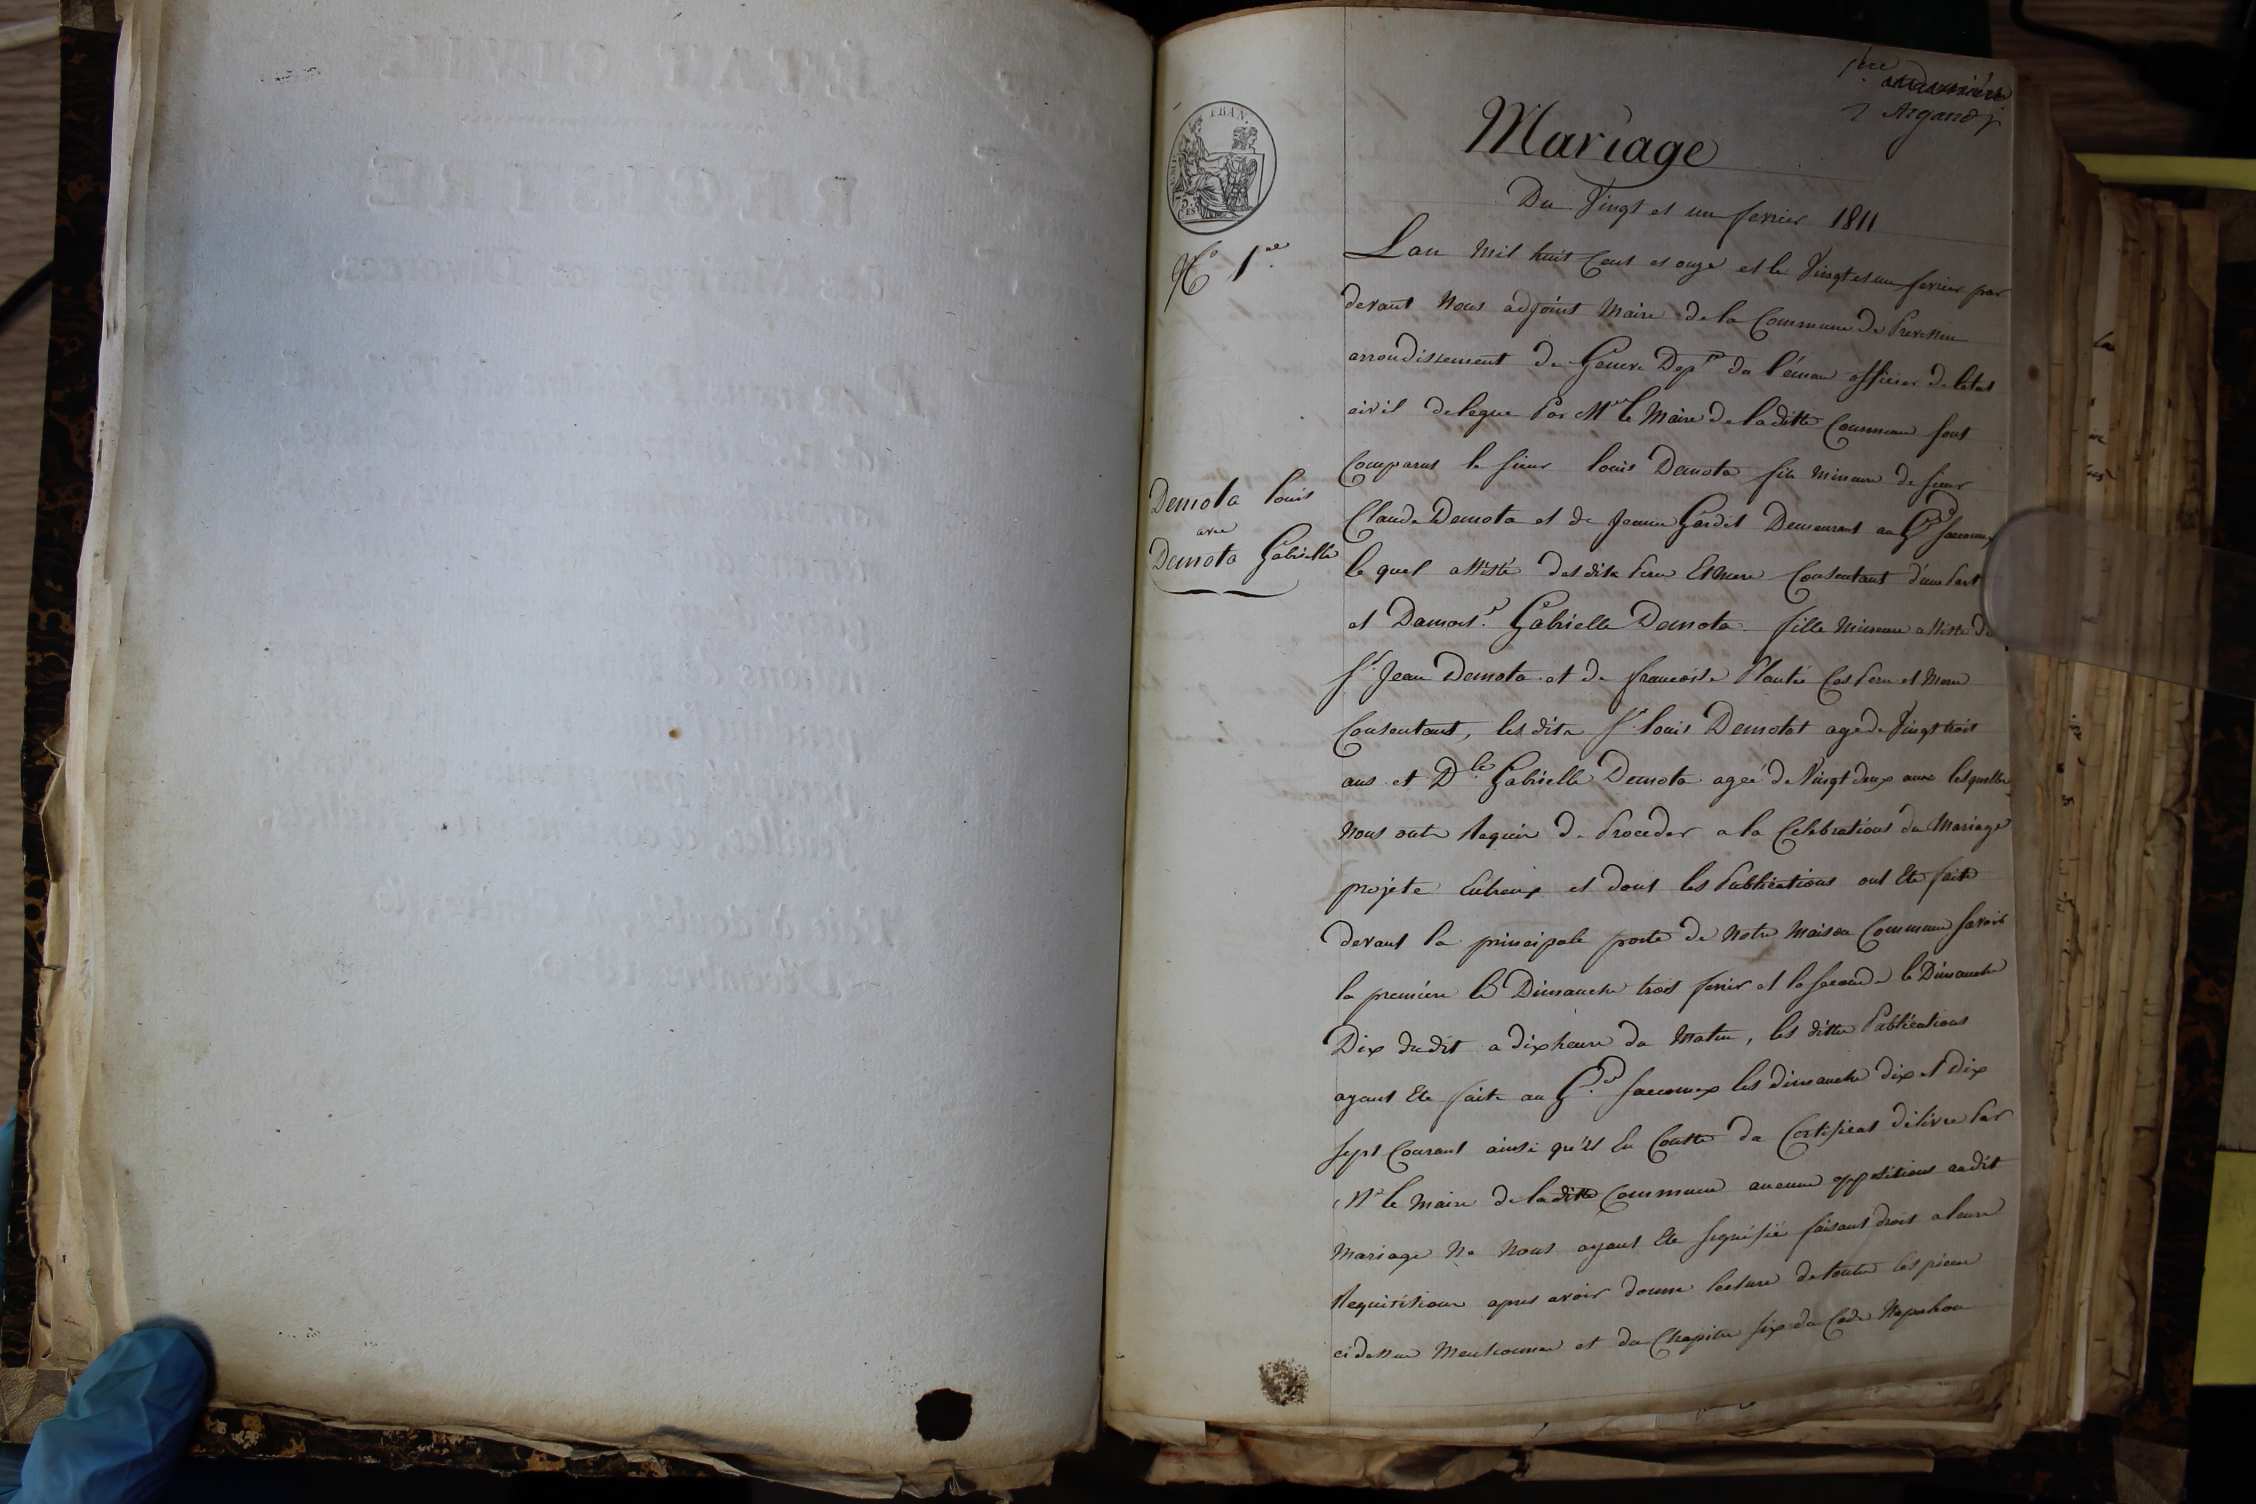 1ere
Argand j
FRAN.
75
Ces
Mariage
Du Vingt et un fevrier 1811
No 1er
Lan mil huit Cent et onze et le Vingt et un fevrier par
devant Nous adjoint Maire de la Commune de Prevessin
arrondissement de Geneve Dept du Léman officier de letat
civil delegue Par Mr le Maire de laditte Commune sont
Comparus le sieur louis Demota fils mineur de sieur
Claude Demota et de Jeanne Gardet Demeurant au Gd saconnex
le quel assisté des dits Pere Et Mere Consentant d'une Part
et Damoise Gabrielle Demota fille mineure assisté de
Sr Jean Demota et de francoise Plantié Ces Pere et Mere
Consentant, les dits Sr louis Demotat agé de Vingt trois
ans et Dle Gabrielle Demota agée de Vingt deux ans lesquelles
Nous onts Requis de Proceder a la Celebrations du Mariage
projeté Entreux et dont les Publications ont Ete faite
devant la principale porte de Notre Maison Commune savoir
la premiere le Dimanche trois fevrir et la seconde le Dimanche
Dix dudit a dix heure du Matin, les dittes Publications
ayant Ete faite au Gd saconnex les dimanche dix et Dix
sept Courant ainsi qu'il En Conste du Certificat délivré Par
Mr le Maire de laditte Commune aucune oppositions audit
Mariage Ne Nous ayant Ete signifié faisant droit a leurs
Requisitions apres avoir donne lecture de toutes les pieces
ci dessus Mentionnee et du Chapitre six du Code Napoleon
Demota louis
avec
Demota Gabrielle